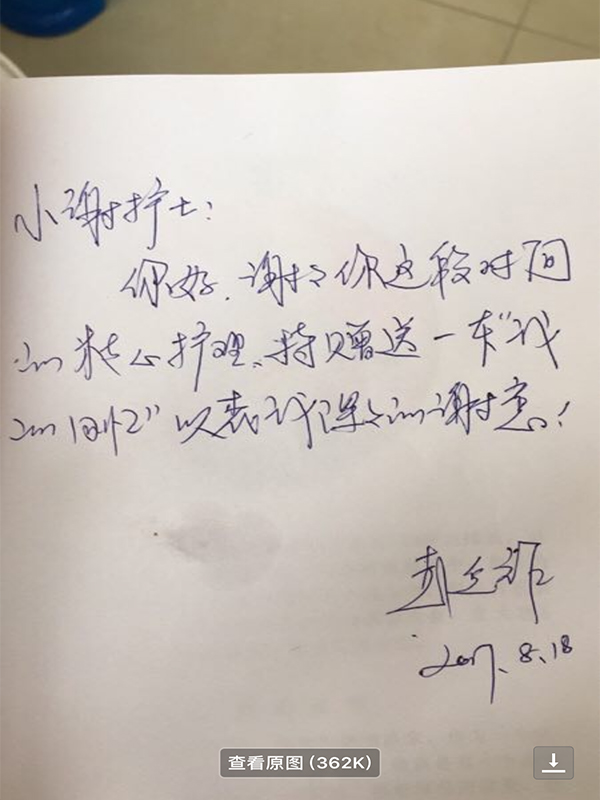 小谢护士：
你好，谢谢你这段时间
的精心护理，特赠送一本“我
的回忆”以表我深深的谢意！
2017.8.18
查看原图 (362K)